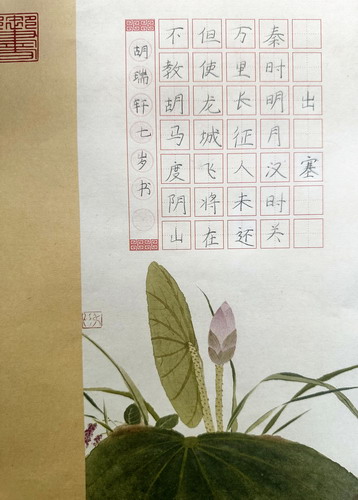 出塞
秦时明月汉时关
万里长征人未还
但使龙城飞将在
不教胡马度阴山
胡瑞轩七岁书